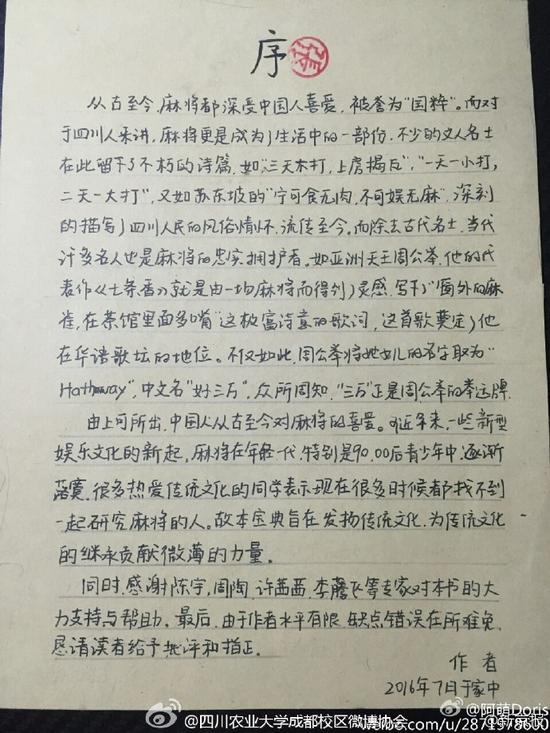 序
从古至今,麻将都深受中国人喜爱,被誉为“国粹”。而对
于四川人来讲,麻将更是成为了生活中的一部份,不少的文人名士
在此留下了不朽的诗篇,如“三天不打,上房揭瓦”,“一天一小打,
二天一大打”,又如苏东坡的“宁可食无肉,不可娱无麻”,深刻
的描写了四川人民的风俗情怀,流传至今。而除去古代名士,当代
许多名人也是麻将的忠实拥护者。如亚洲天王周公举,他的代
表作《七条香》就是由一场麻将而得到了灵感,写下了“窗外的麻
雀,在茶馆里面多嘴”这极富诗意的歌词,这首歌奠定了他
在华语歌坛的地位。不仅如此,周公举将她女儿的名字取为“
Hathaway”,中文名“好三万”,众所周知,“三万”正是周公举的幸运牌.
由上可所出,中国人从古至今对麻将的喜爱。近年来,一些新型
娱乐文化的新起,麻将在年轻一代,特别是90,00后青少年中,逐渐
落寞,很多热爱传统文化的同学表示现在很多时候都找不到
一起研究麻将的人。故本宝典旨在发扬传统文化,为传统文化
的继承贡献微薄的力量。
同时,感谢陈宇,周陶,许茜茜,李腾飞等专家对本书的大
力支持与帮助。最后,由于作者水平有限,缺点错误在所难免,
恳请读者给予批评和指正。
作者
2016年7月于家中
@阿萌Doris
@四川农业大学成都校区微博协会
weibo.com/u/2871978600